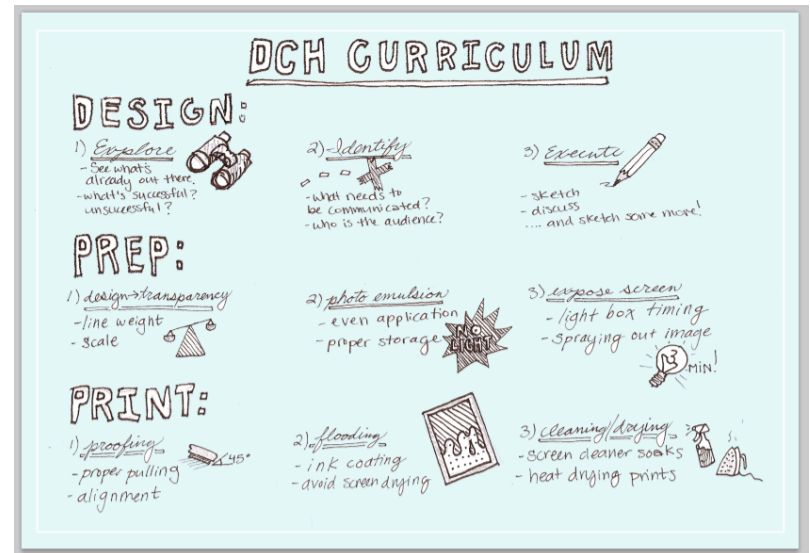 DCH CURRICULUM
DESIGN:
1) Explore
- See what's
already out there.
- what's successful?
unsuccessful?
2) Identify
- what needs to
be communicated?
- who is the audience?
3) Execute
- sketch
- discuss
.... and sketch some more!
PREP:
1) design→transparency
- line weight
- scale
2) photo emulsion
- even application
- proper storage
NO
LIGHT
3) expose screen
- light box timing
- spraying out image
3
MIN!
PRINT:
1) proofing
- proper pulling
- alignment
45°
2) flooding
- ink coating
- avoid screen drying
3) cleaning/drying
- screen cleaner soaks
- heat drying prints